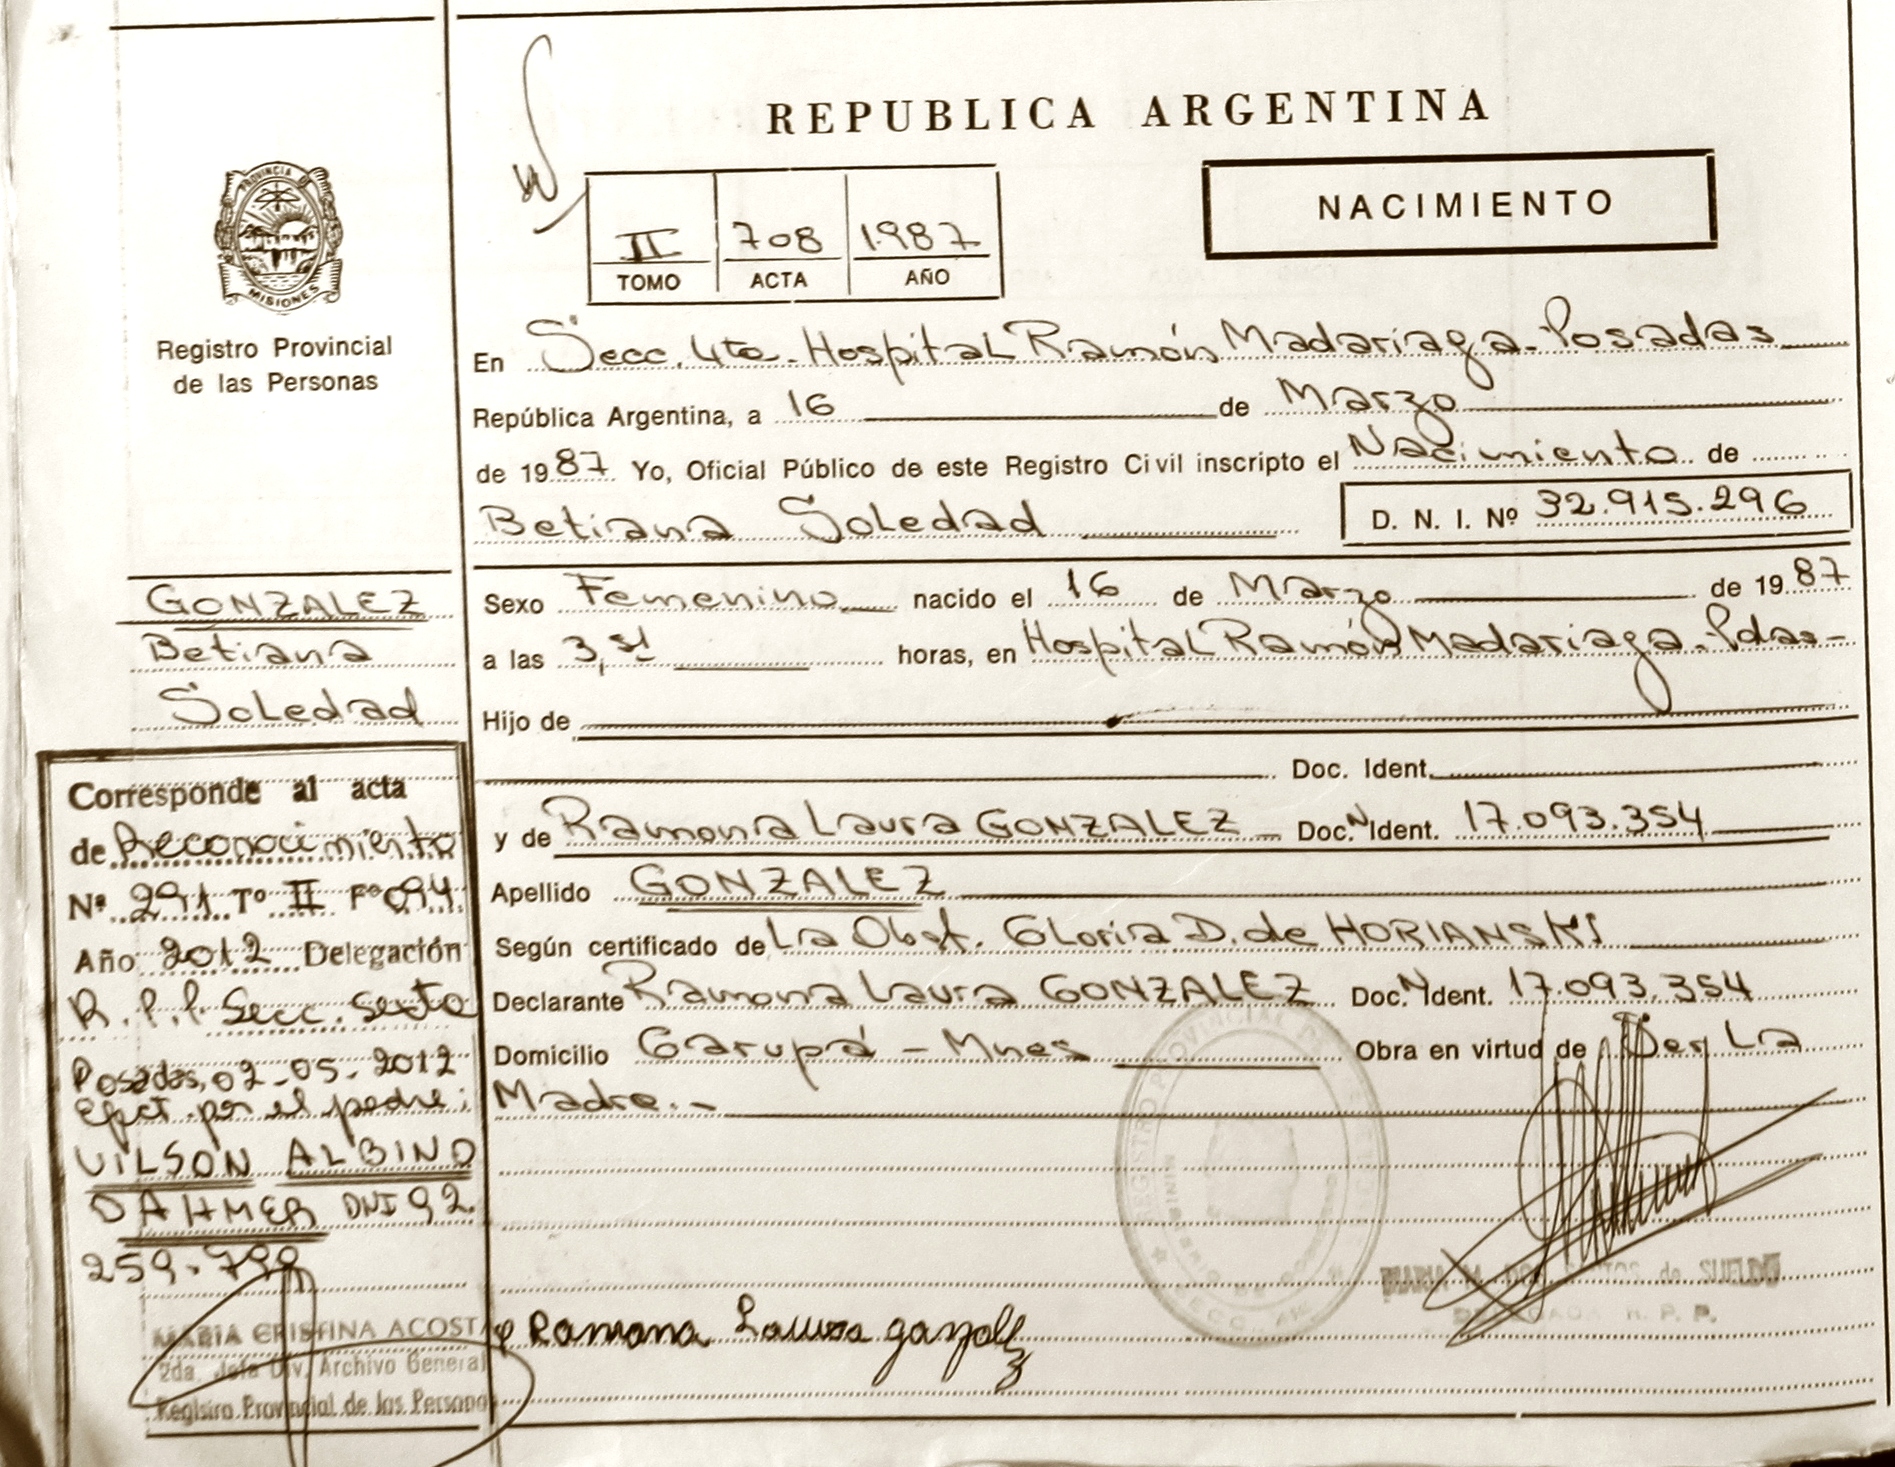 REPUBLICA ARGENTINA
NACIMIENTO
II 708 1987
TOMO ACTA AÑO
PROVINCIA DE
MISIONES
Registro Provincial
de las Personas
En Secc. 4ta. Hospital Ramón Madariaga. Posadas
República Argentina, a 16 de Marzo
de 1987 Yo, Oficial Público de este Registro Civil inscripto el Nacimiento de
Betiana Soledad D. N. I. Nº 32.915.296
Sexo Femenino nacido el 16 de Marzo de 1987
a las horas, en Hospital Ramón Madariaga. Pdas-
Hijo de
Doc. Ident.
y de Ramona Laura GONZALEZ Doc. N Ident. 17.093.354
Apellido GONZALEZ
Según certificado de La Obst. Gloria D. de HORIANSKI
Declarante Ramona Laura GONZALEZ Doc. N Ident. 17.093.354
Domicilio Garupá - Mnes Obra en virtud de Ser La
Madre.-
Ramona Laura
GONZALEZ
Betiana
Soledad
Corresponde al acta
de Reconocimiento
Nº 291 Tº II Fº 094
Año 2012 Delegación
R.P.P Secc. Sexta
Posadas, 02-05-2012
Efect. por el padre:
VILSON ALBINO
DAHMER DNI 92.
259.799
MARIA CRISTINA ACOSTA
2da. Jefa Div. Archivo General
Registro Provincial de las Personas